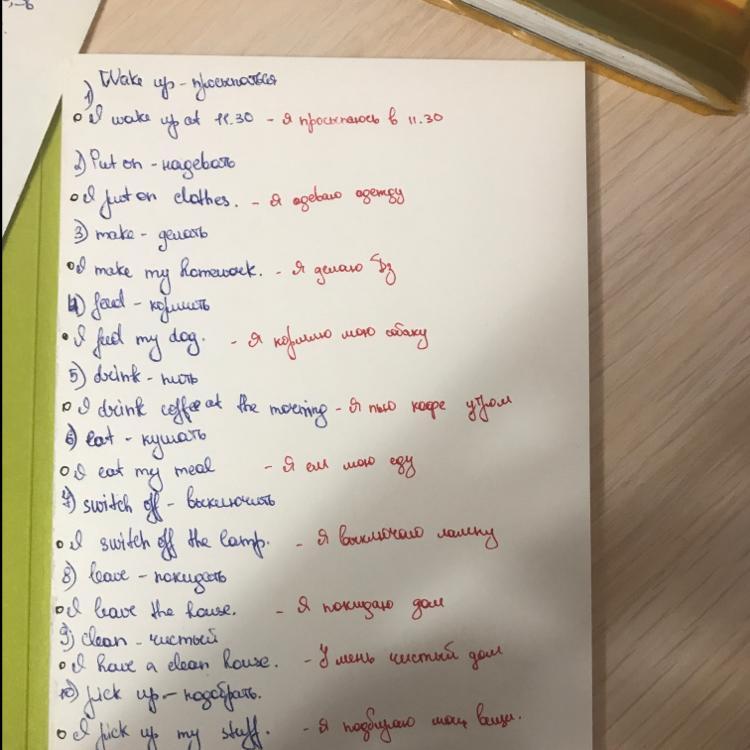 1) Wake up - просыпаться
I wake up at 11.30 - я просыпаюсь в 11.30
2) Put on - надевать
I put on clothes. - я одеваю одежду
3) make - делать
I make my homework. - я делаю Дз
4) feed - кормить
I feed my dog. - я кормлю мою собаку
5) drink - пить
I drink coffee at the morning - я пью кофе утром
6) eat - кушать
I eat my meal - я ем мою еду
7) switch off - выключить
I switch off the lamp. - я выключаю лампу
8) leave - покидать
I leave the house. - я покидаю дом
9) clean - чистый
I have a clean house. - У мень чистый дом
10) pick up - подобрать.
I pick up my stuff. - я подбираю мои вещи.